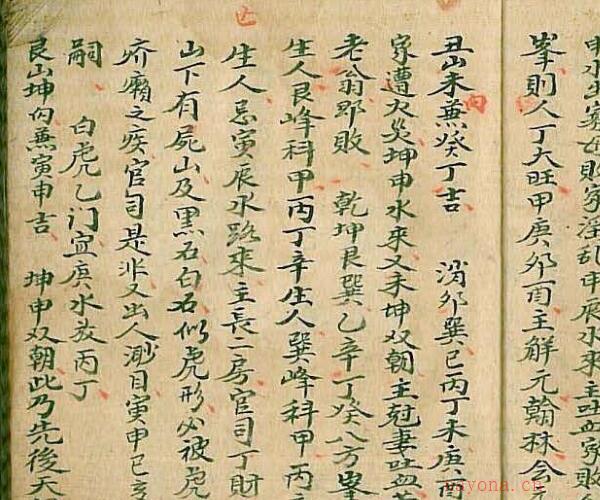 申水生窮亡敗家淫乱申辰水来主吐血家敗
峯則人丁大旺甲庚卯酉主觧元翰林令
丑山未兼癸丁吉　消卯巽巳丙丁未庚
向
家遭火災坤申水来又未坤双朝主尅妻吐血
老翁耶敗　乾坤艮巽乙辛丁癸八方峯
生人艮峰科甲丙丁辛生人巽峰科甲丙
亡
生人忌寅辰水路来主長二房官司丁財
山下有屍山及黒石白石似虎形必被虎
疥癩之疾官司是非又出人渺目寅申巳亥
嗣　白虎乙门宜庚水放丙丁
艮山坤向兼寅申吉　坤申双朝此乃先後天
yayona.cn